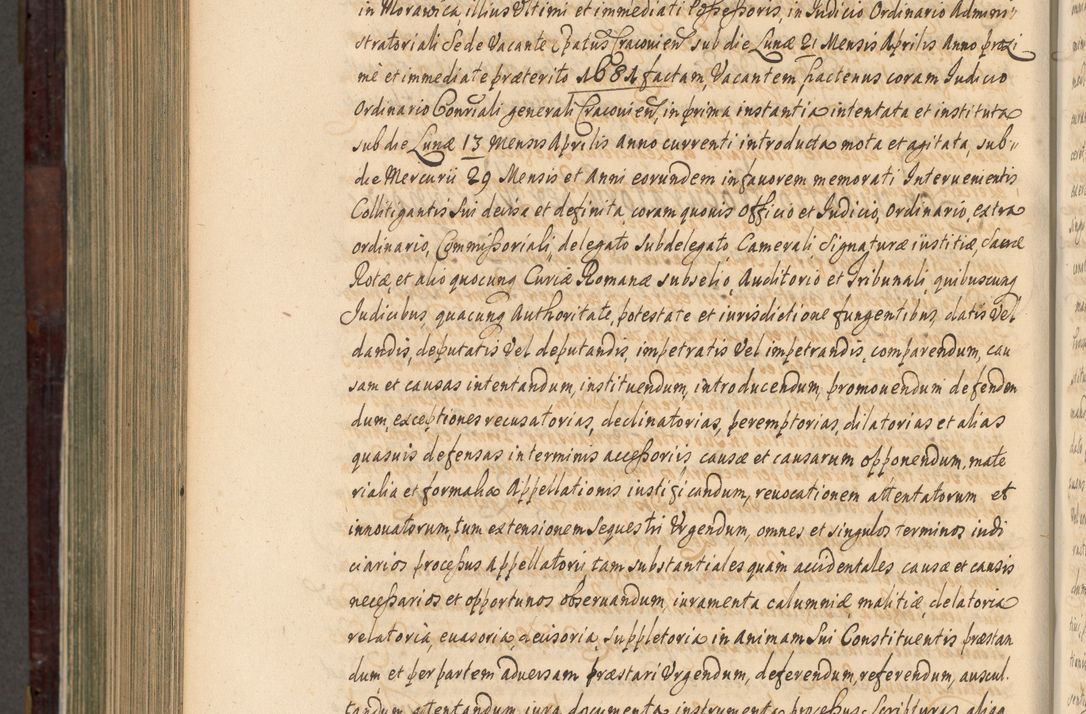 in Morawica illius Ultimi et immediati Possessoris, in Judicio Ordinario Admini
stratoriali Sede Vacante Epatus Cracovien sub die Lunæ 21 Mensis Aprilis Anno proxi
mè et immediate præterito 1681 factam, Vacantem, hactenus coram Judicio
Ordinario Consiali generali Cracovien, in prima instantia intentata et instituta
sub die Lunæ 13 Mensis Aprilis Anno currenti introducta mota et agitata, sub
die Mercurii 29 Mensis et Anni eorundem in favorem memorati Intervenientis
Collitigantis Sui decisa et definita, coram quovis Officio et Judicio, Ordinario, extra
ordinario, Commissoriali, delegato Subdelegato Camerali, Signaturæ iustitiæ, Sacræ
Rotæ, et alio quocunq Curiæ Romanæ subselio, Auditorio et Tribunali, quibuscunq
Judicibus, quacunq Authoritate, potestate et iurisdictione fungentibus, datis Vel
dandis, deputatis Vel deputandis, impetratis Vel impetrandis, comparendum, cau
sam et causas intentandum, instituendum, introducendum, promovendum defenden
dum, exceptiones recusatorias, declinatorias, peremptorias, dilatorias et alias
quasvis defensas interminis accessoriis causæ et causarum opponendum, mate
rialia et formalia Appellationis iustificandum, revocationem attentatorum et
innovatorum, tum extensionem Sequestri Urgendum, omnes et singulos terminos iudi
ciarios processus Appellatorii tam substantiales quàm accidentales causæ et causis
necessarios et opportunos observandum, iuramenta calumniæ malitiæ, delatoria
relatoria, evasoria, decisoria, suppletoria in animam Sui Constituentis præstan
dum et per partem adversam præstari Urgendum, deferendum, referendum, auscul
tandum, attentandum, iura documenta instrumenta processus Scripturas aliaq